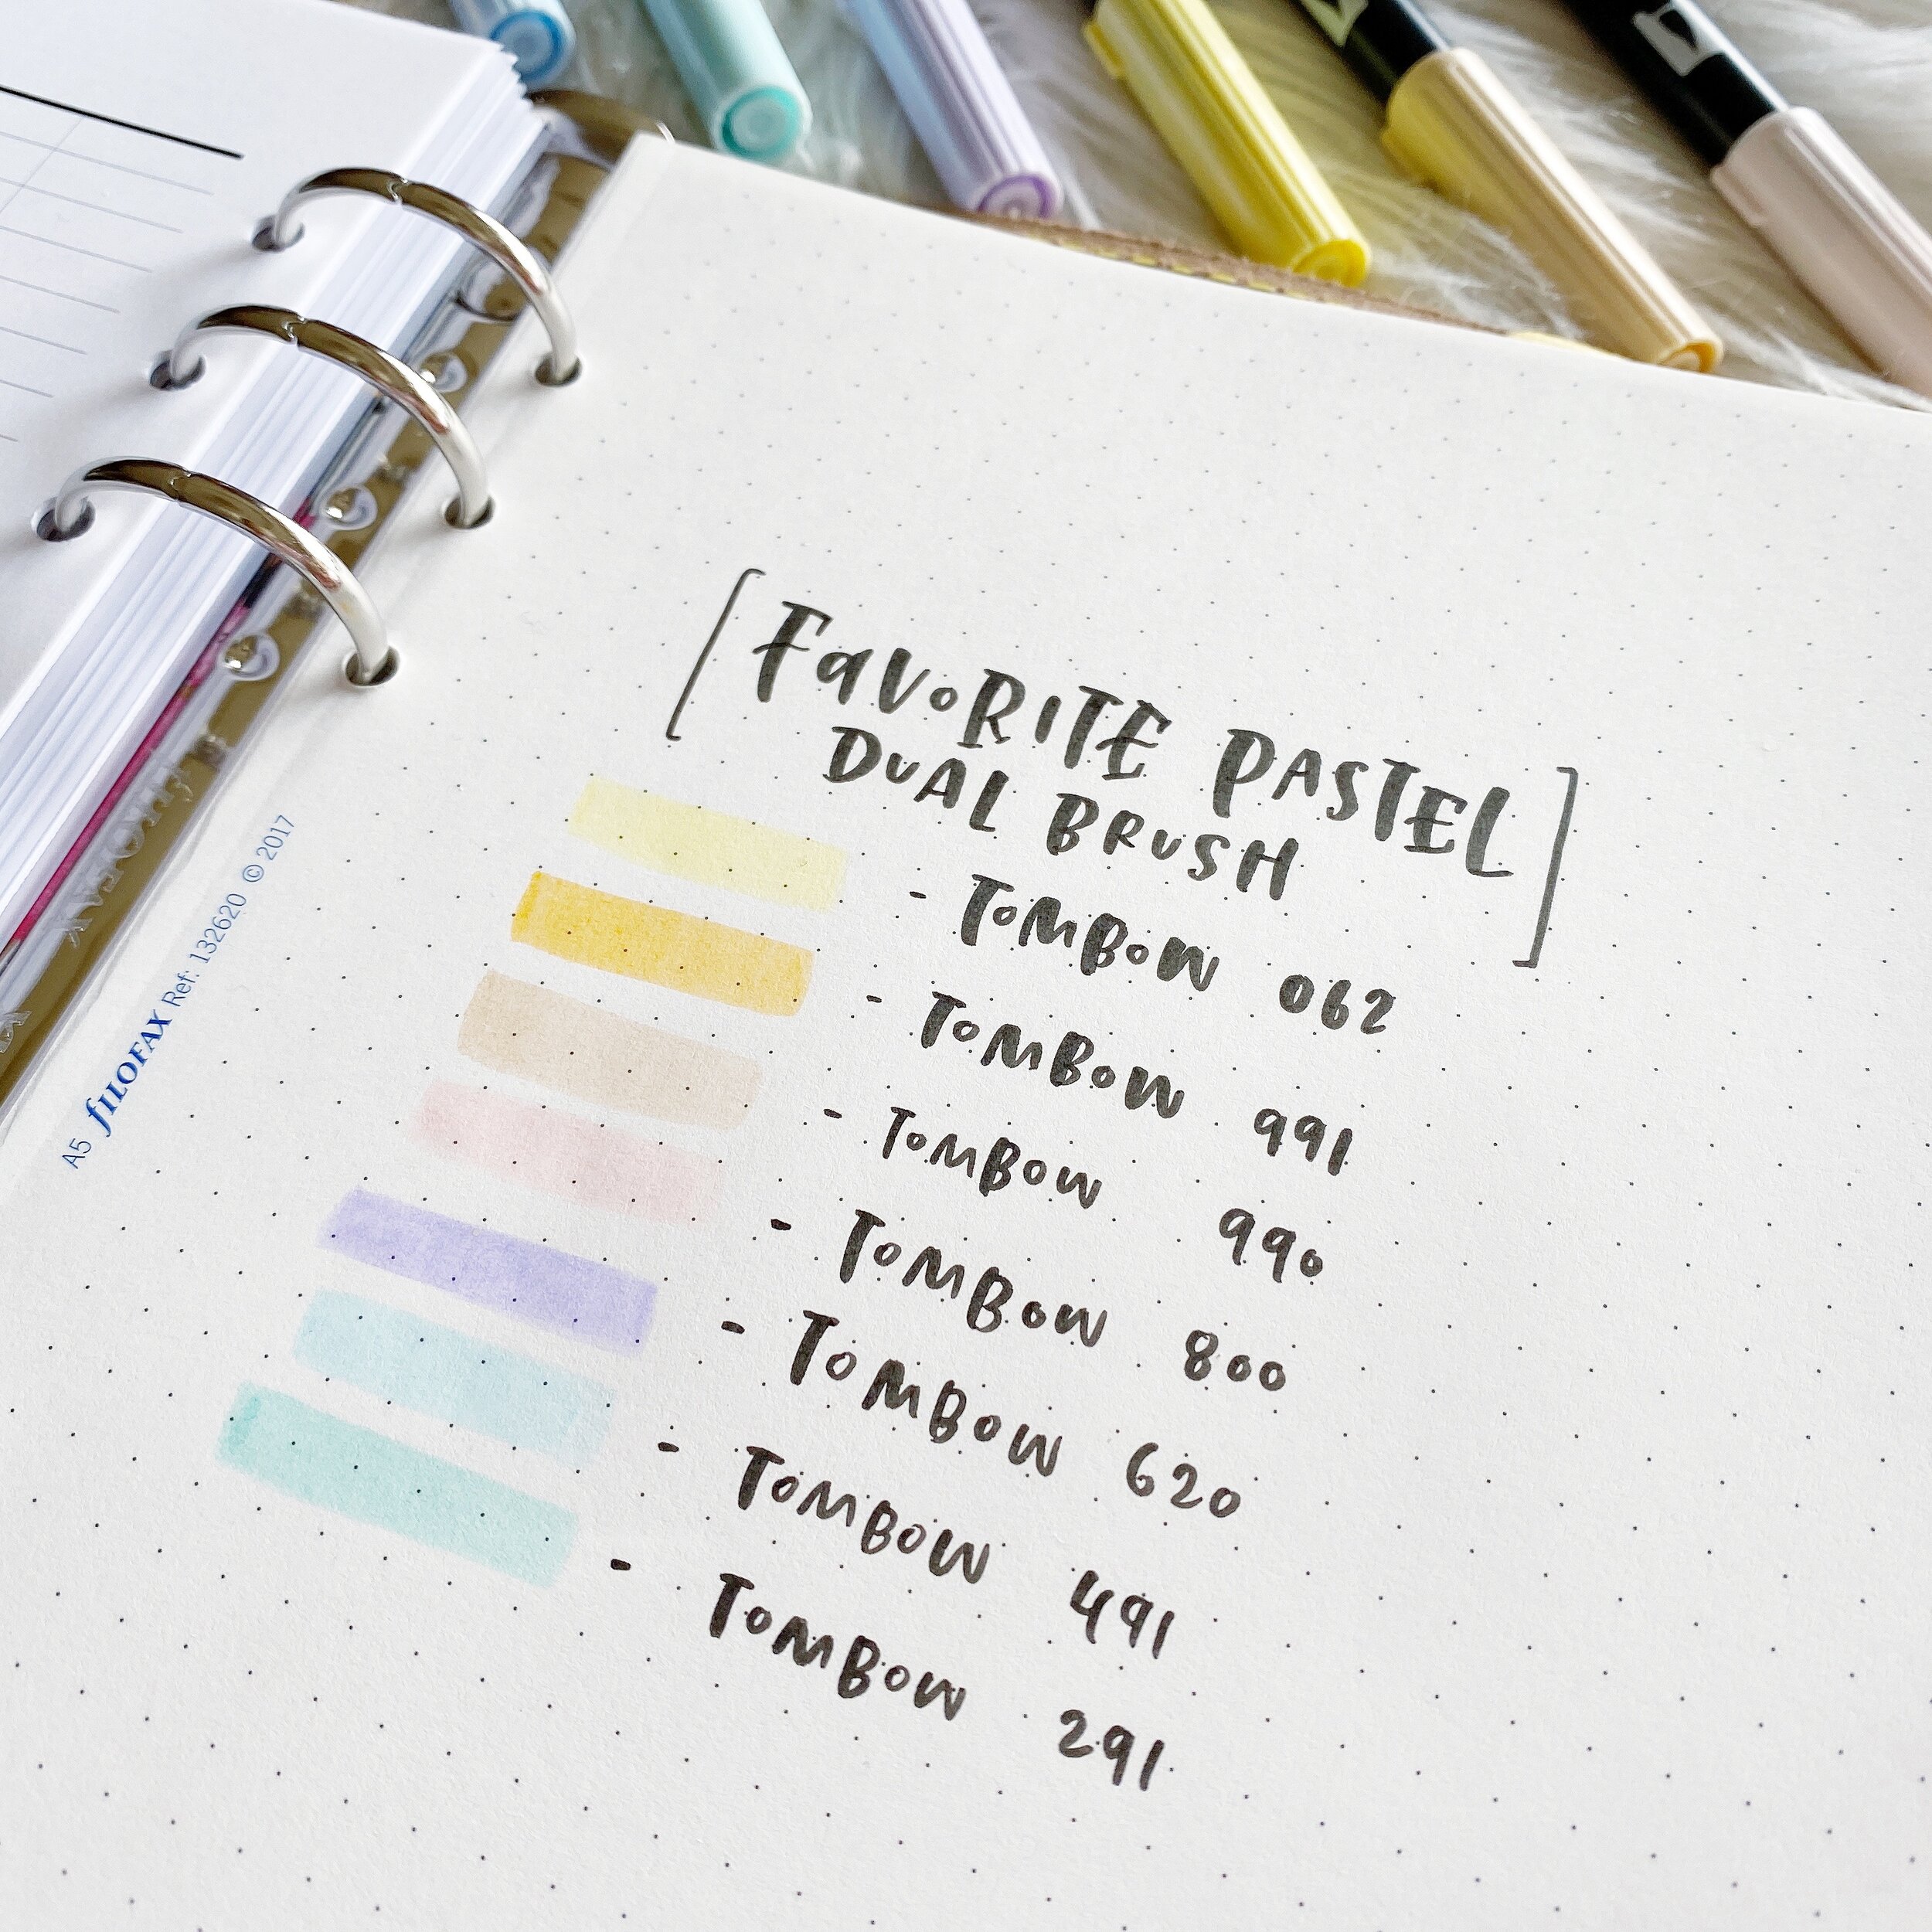 [Favorite Pastel
Dual Brush]
- Tombow 062
- Tombow 991
- Tombow 990
- Tombow 800
- Tombow 620
- Tombow 491
- Tombow 291
A5 fILOFAX Ref: 132620 © 2017